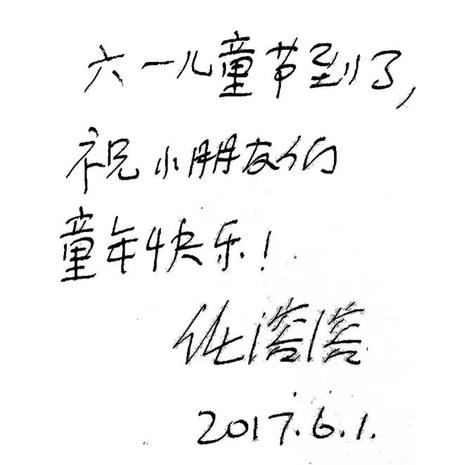 六一儿童节到了,
祝小朋友们
童年快乐!
任溶溶
2017.6.1.